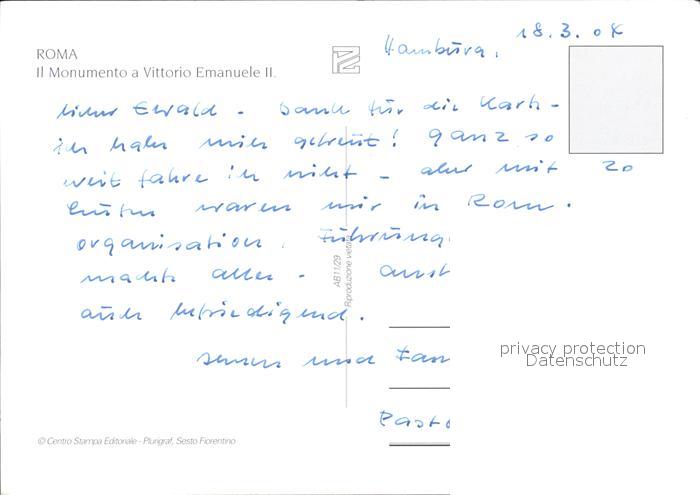 ROMA
Il Monumento a Vittorio Emanuele II.
Hamburg, 18.3.08
Lieber Ewald - Dank für die Karte -
ich habe mich gefreut! Ganz so
weit fahre ich nicht - aber mit 20
Leuten waren wir in Rom.
Organisation, Führung
machte alles -
auch befriedigend.
und
AB11/29
Riproduzione vietata
privacy protection
Datenschutz
© Centro Stampa Editoriale - Plurigraf, Sesto Fiorentino